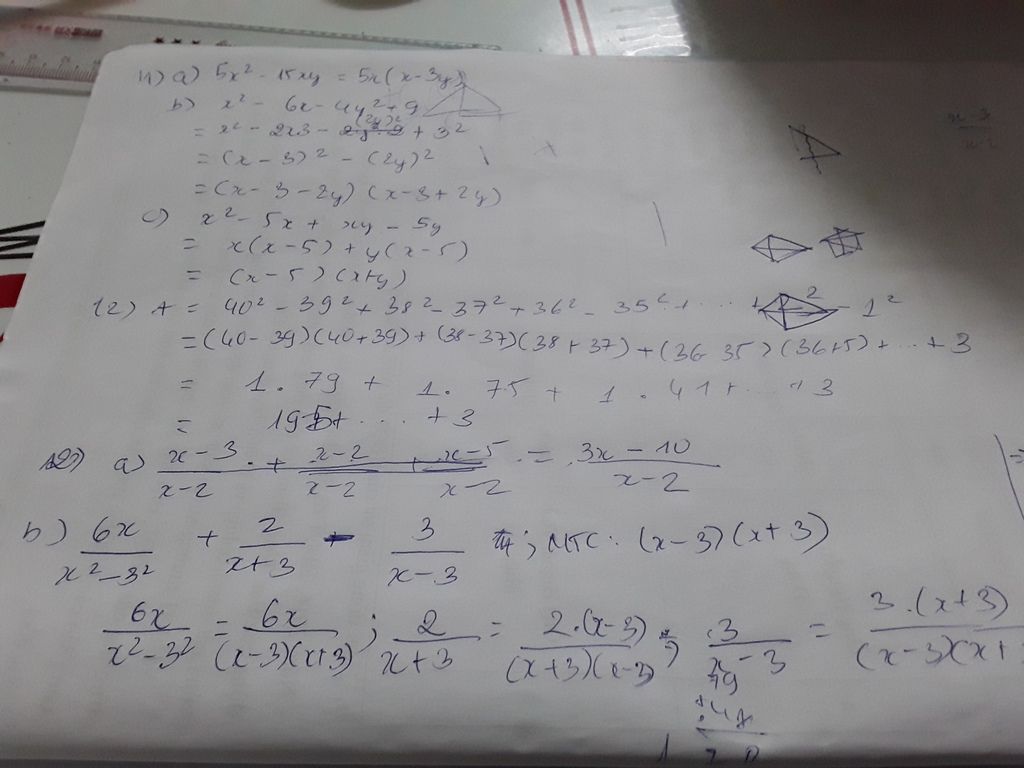 11) a) 5x² - 15xy = 5x(x-3y)
b) x² - 6x - 4y² + 9
= x² - 2x3 - (2y)² + 3²
= (x - 3)² - (2y)²
= (x - 3 - 2y) (x - 3 + 2y)
c) x² - 5x + xy - 5y
= x(x - 5) + y(x - 5)
= (x - 5) (x+y)
12) A = 40² - 39² + 38² - 37² + 36² - 35² + ... + 2 - 1²
= (40 - 39)(40 + 39) + (38 - 37)(38 + 37) + (36 35) (36+5) + ... + 3
= 1 . 79 + 1 . 75 + 1 . 41 + ... + 3
= 195 + ... + 3
a) x - 3 / x - 2 + x - 2 / x - 2 + x - 5 / x - 2 = 3x - 10 / x - 2
b) 6x / x² - 3² + 2 / x + 3 - 3 / x - 3 ; MTC: (x - 3) (x + 3)
6x / x² - 3² = 6x / (x - 3)(x + 3) ; 2 / x + 3 = 2.(x - 3) / (x + 3)(x - 3) ; 3 / x - 3 = 3.(x + 3) / (x - 3)(x +
79